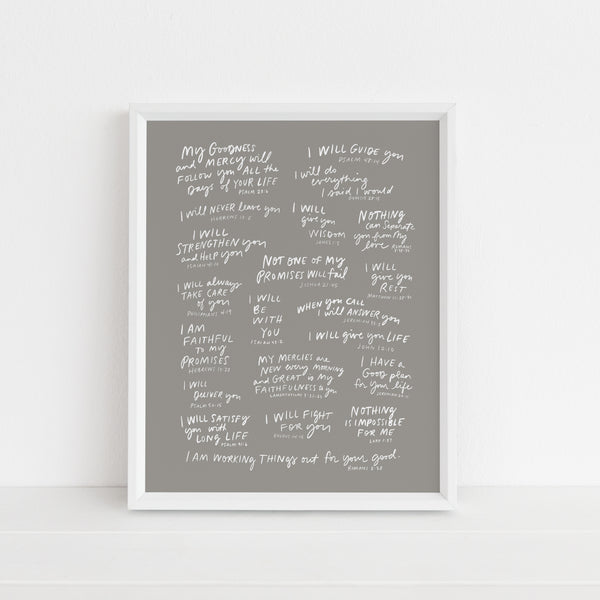 My Goodness
and Mercy will
Follow you All the
Days of Your Life
Psalm 23:6
I will Guide you
Psalm 48:14
I will do
everything
I said I would
I will Never leave you
Hebrews 13:5
I will
give you
Wisdom
James 1:5
Nothing
can Separate
you from My
love Romans
I will
Strengthen you
and Help you
Isaiah 41:10
Not one of My
Promises Will fail
Joshua 21:45
I will
give you
Rest
Matthew 11:28-30
I will always
Take care
of you
Philippians 4:19
I will
Be
With
You
Isaiah 43:2
When you Call
I will Answer you
Jeremiah 33:3
I am
Faithful
to My
Promises
Hebrews 10:23
I will give you Life
John 10:10
My Mercies are
New every morning
and Great is My
Faithfulness to you
Lamentations 3:22-23
I have a
Good plan
for your life
Jeremiah 29:11
I will
Deliver you
Psalm 50:15
I will Satisfy
you with
Long Life
Psalm 91:16
I will Fight
For you
Exodus 14:14
Nothing
is Impossible
For Me
Luke 1:37
I am Working Things out for your good.
Romans 8:28